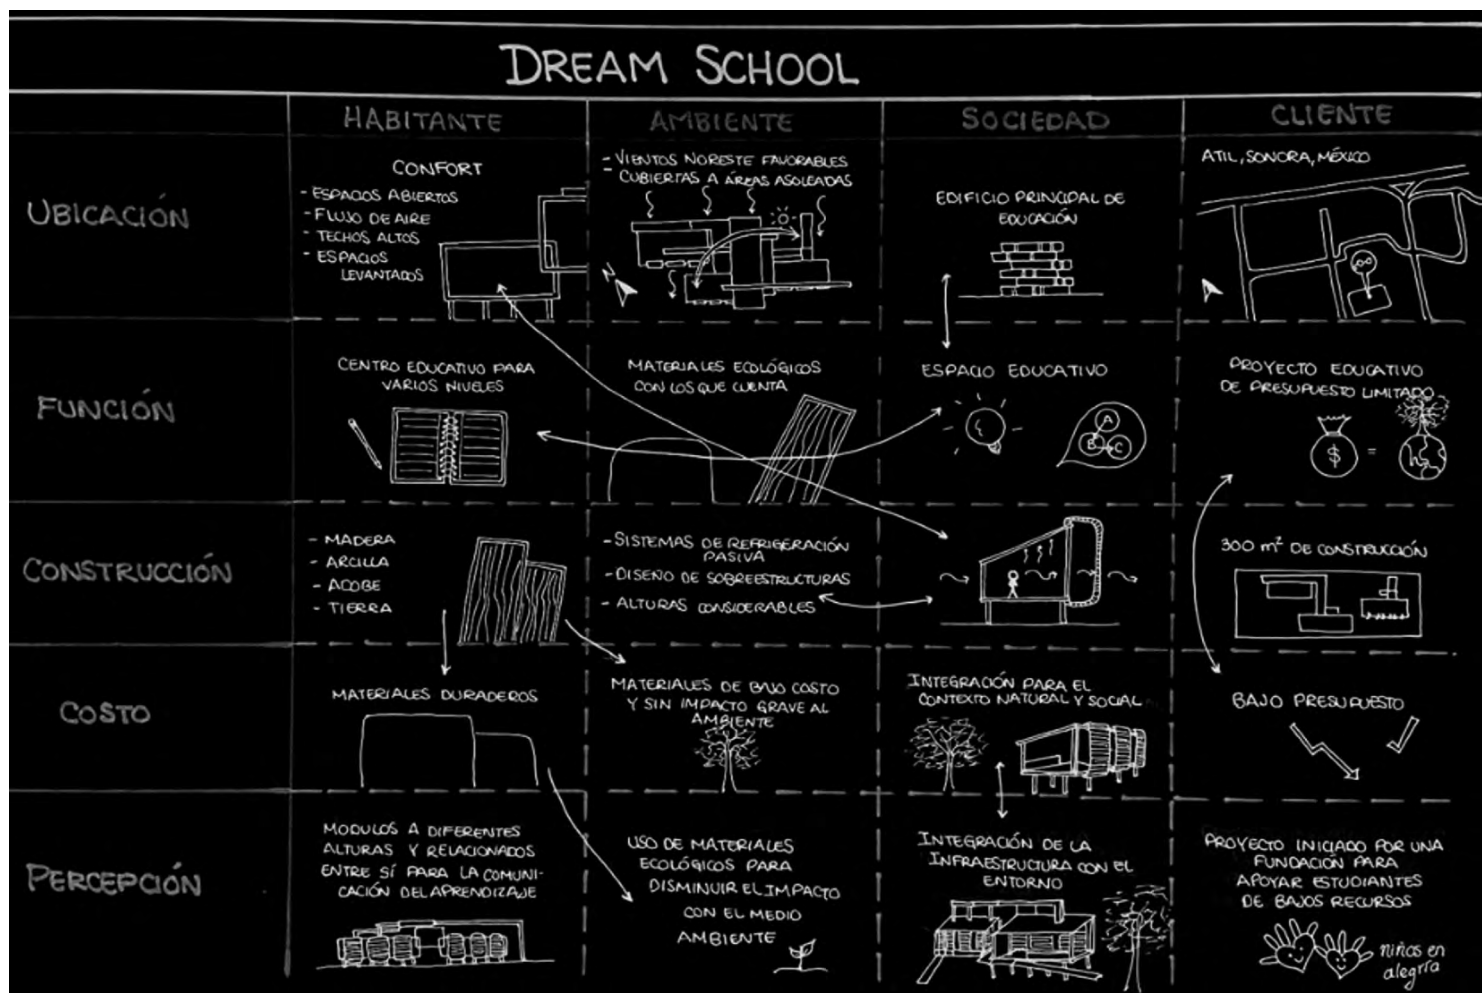 DREAM SCHOOL
HABITANTE
AMBIENTE
SOCIEDAD
CLIENTE
UBICACIÓN
CONFORT
- ESPACIOS ABIERTOS
- FLUJO DE AIRE
- TECHOS ALTOS
- ESPACIOS
LEVANTADOS
- VIENTOS NORESTE FAVORABLES
- CUBIERTAS A ÁREAS ASOLEADAS
EDIFICIO PRINCIPAL DE
EDUCACIÓN
ATIL, SONORA, MÉXICO
FUNCIÓN
CENTRO EDUCATIVO PARA
VARIOS NIVELES
MATERIALES ECOLÓGICOS
CON LOS QUE CUENTA
ESPACIO EDUCATIVO
A
B
C
PROYECTO EDUCATIVO
DE PRESUPUESTO LIMITADO
$ =
CONSTRUCCIÓN
- MADERA
- ARCILLA
- ADOBE
- TIERRA
- SISTEMAS DE REFRIGERACIÓN
PASIVA
- DISEÑO DE SOBREESTRUCTURAS
- ALTURAS CONSIDERABLES
300 m² DE CONSTRUCCIÓN
COSTO
MATERIALES DURADEROS
MATERIALES DE BAJO COSTO
Y SIN IMPACTO GRAVE AL
AMBIENTE
INTEGRACIÓN PARA EL
CONTEXTO NATURAL Y SOCIAL
BAJO PRESUPUESTO
PERCEPCIÓN
MODULOS A DIFERENTES
ALTURAS Y RELACIONADOS
ENTRE SÍ PARA LA COMUNI-
CACIÓN DEL APRENDIZAJE
USO DE MATERIALES
ECOLÓGICOS PARA
DISMINUIR EL IMPACTO
CON EL MEDIO
AMBIENTE
INTEGRACIÓN DE LA
INFRAESTRUCTURA CON EL
ENTORNO
PROYECTO INICIADO POR UNA
FUNDACIÓN PARA
APOYAR ESTUDIANTES
DE BAJOS RECURSOS
niños en
alegría